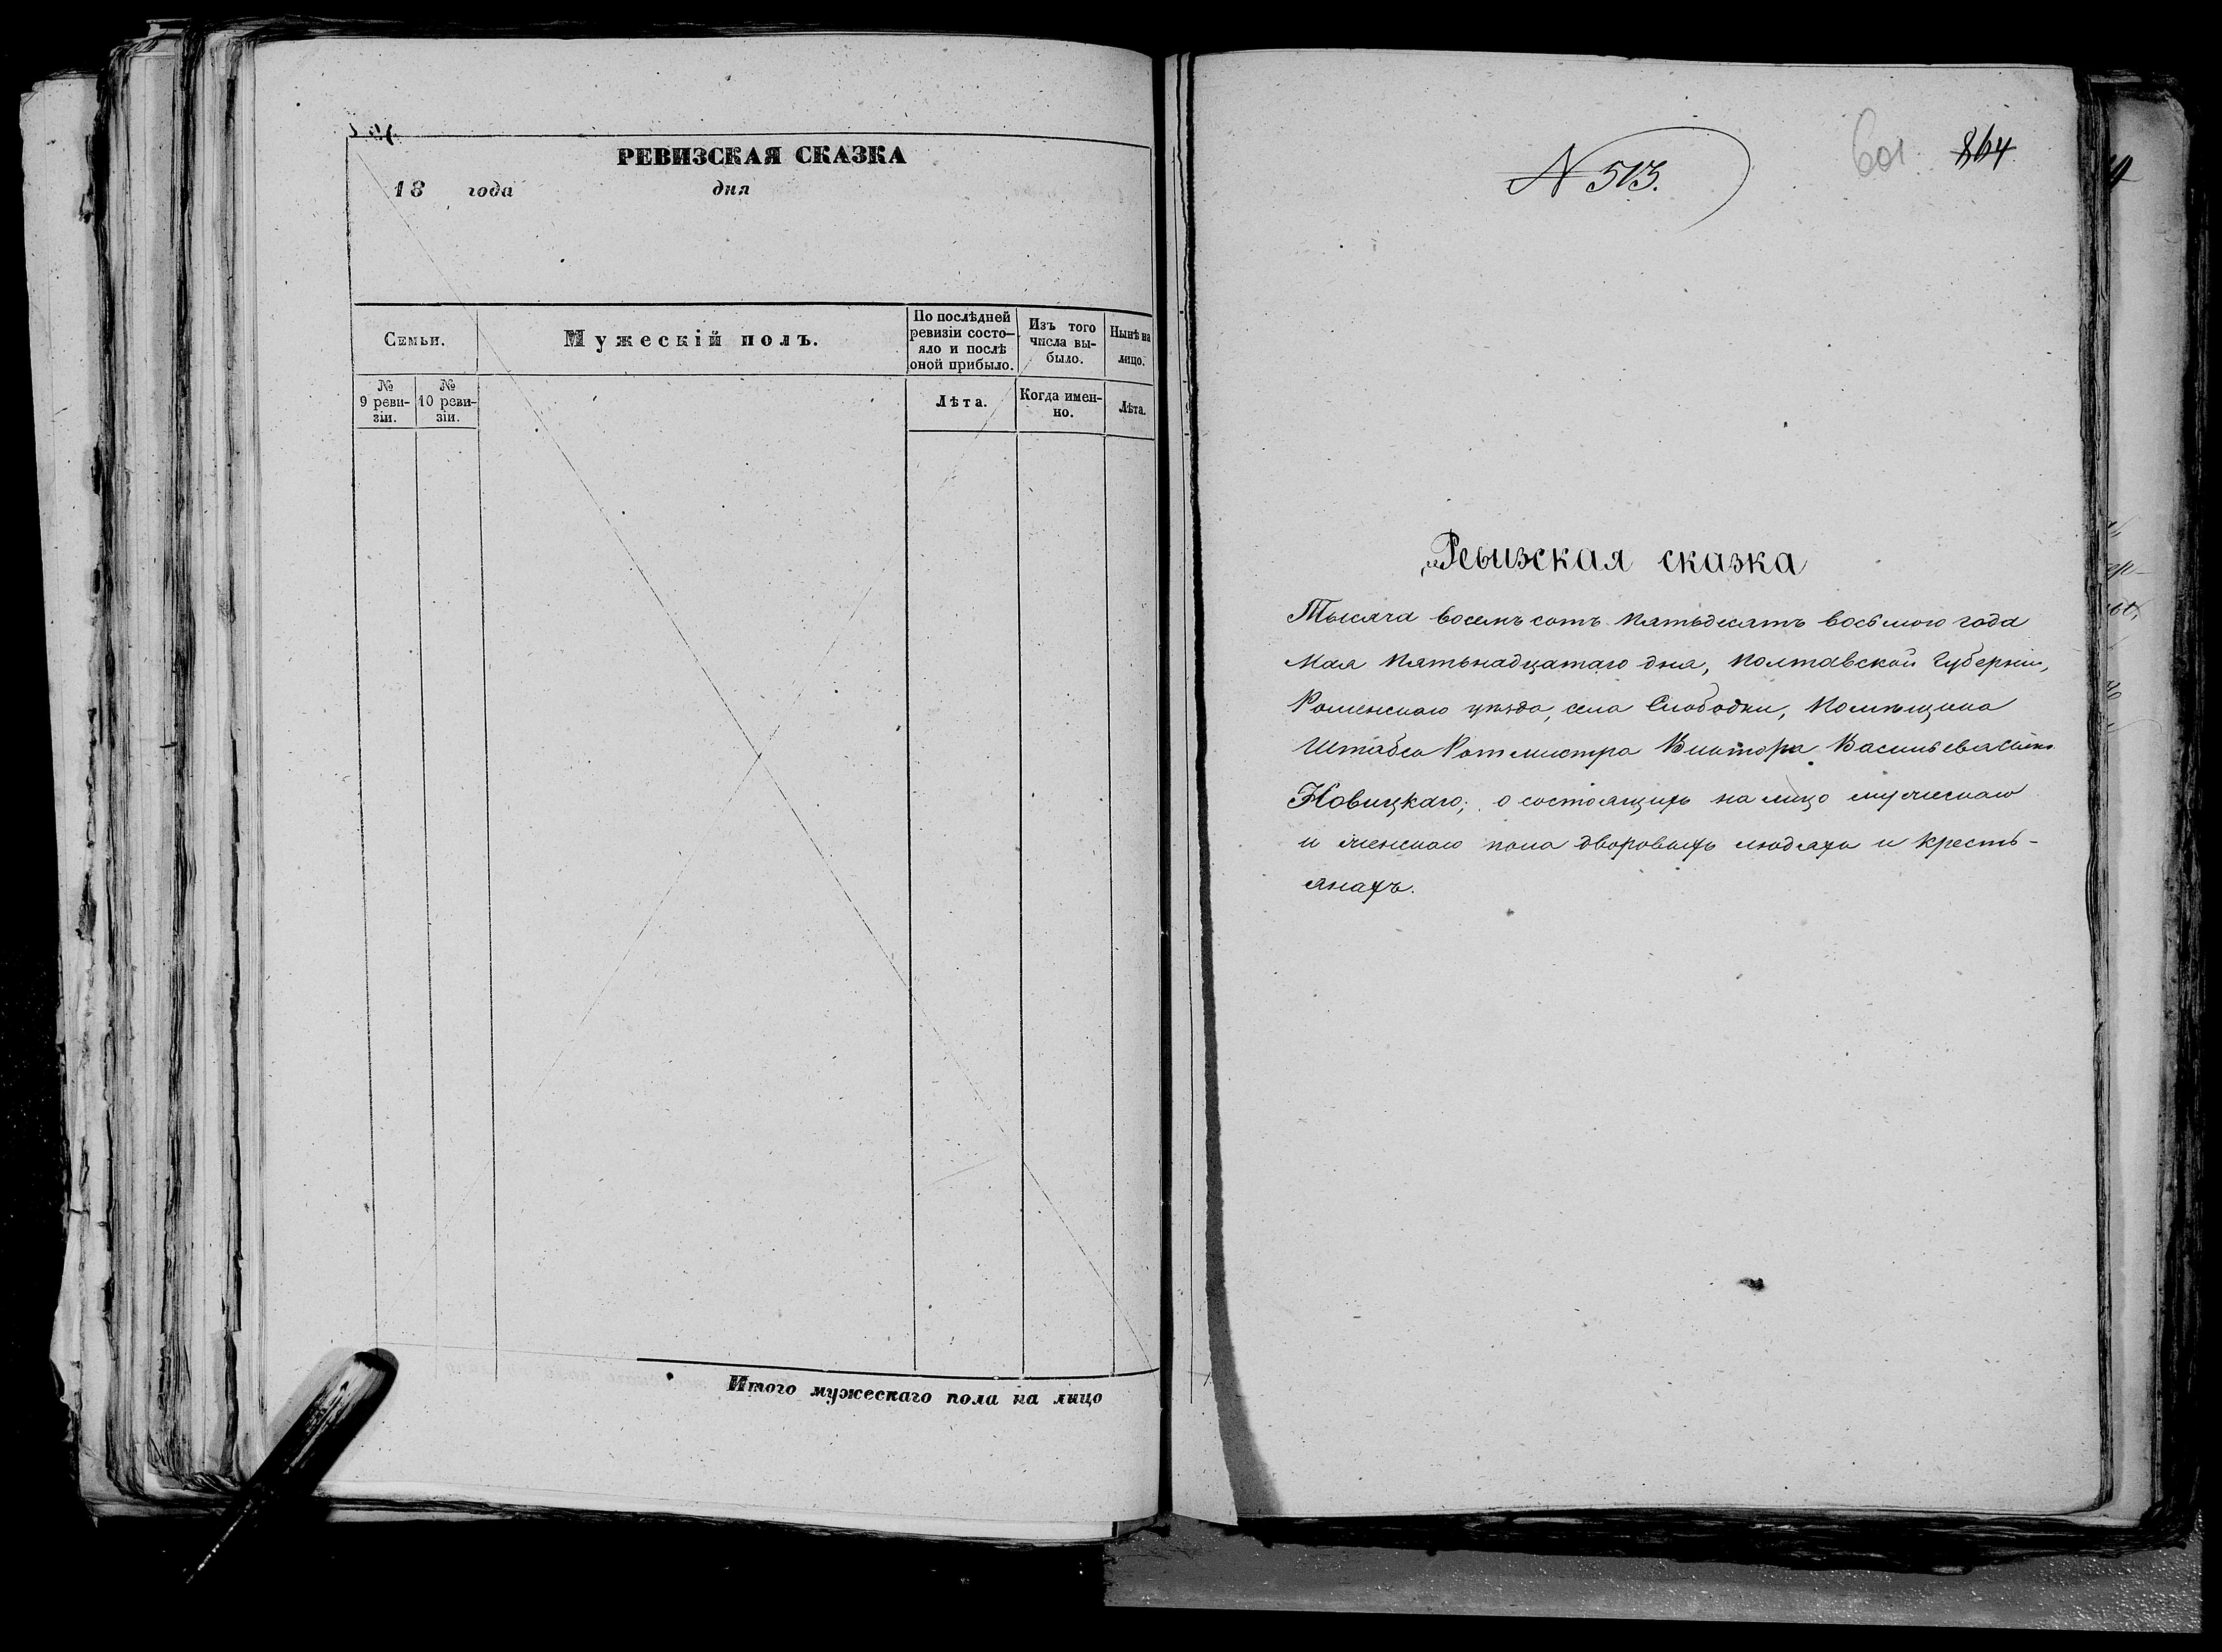 РЕВИЗСКАЯ СКАЗКА
18 года дня
Семьи.
Мужескій полъ.
По послѣдней ревизіи состо-яло и послѣ оной прибыло.
Изъ того числа вы-было.
Нынѣ на лицо.
№ 9 реви-зіи.
№ 10 реви-зіи.
Лѣта.
Когда имен-но.
Лѣта.
Итого мужескаго пола на лицо
N 513.
601. 864
Ревизская сказка
Тысяча восемъ сотъ пятьдесятъ восьмого года
Мая пятьнадцатаго дня, Полтавской Губерніи,
Роменскаго уѣзда, села Слободки, Помѣщика
Штабсъ Ротмистра Виктора Васильева сына
Новицкаго; о состоящихъ на лицо мужескаго
и женскаго пола дворовыхъ людяхъ и кресть-
янахъ.